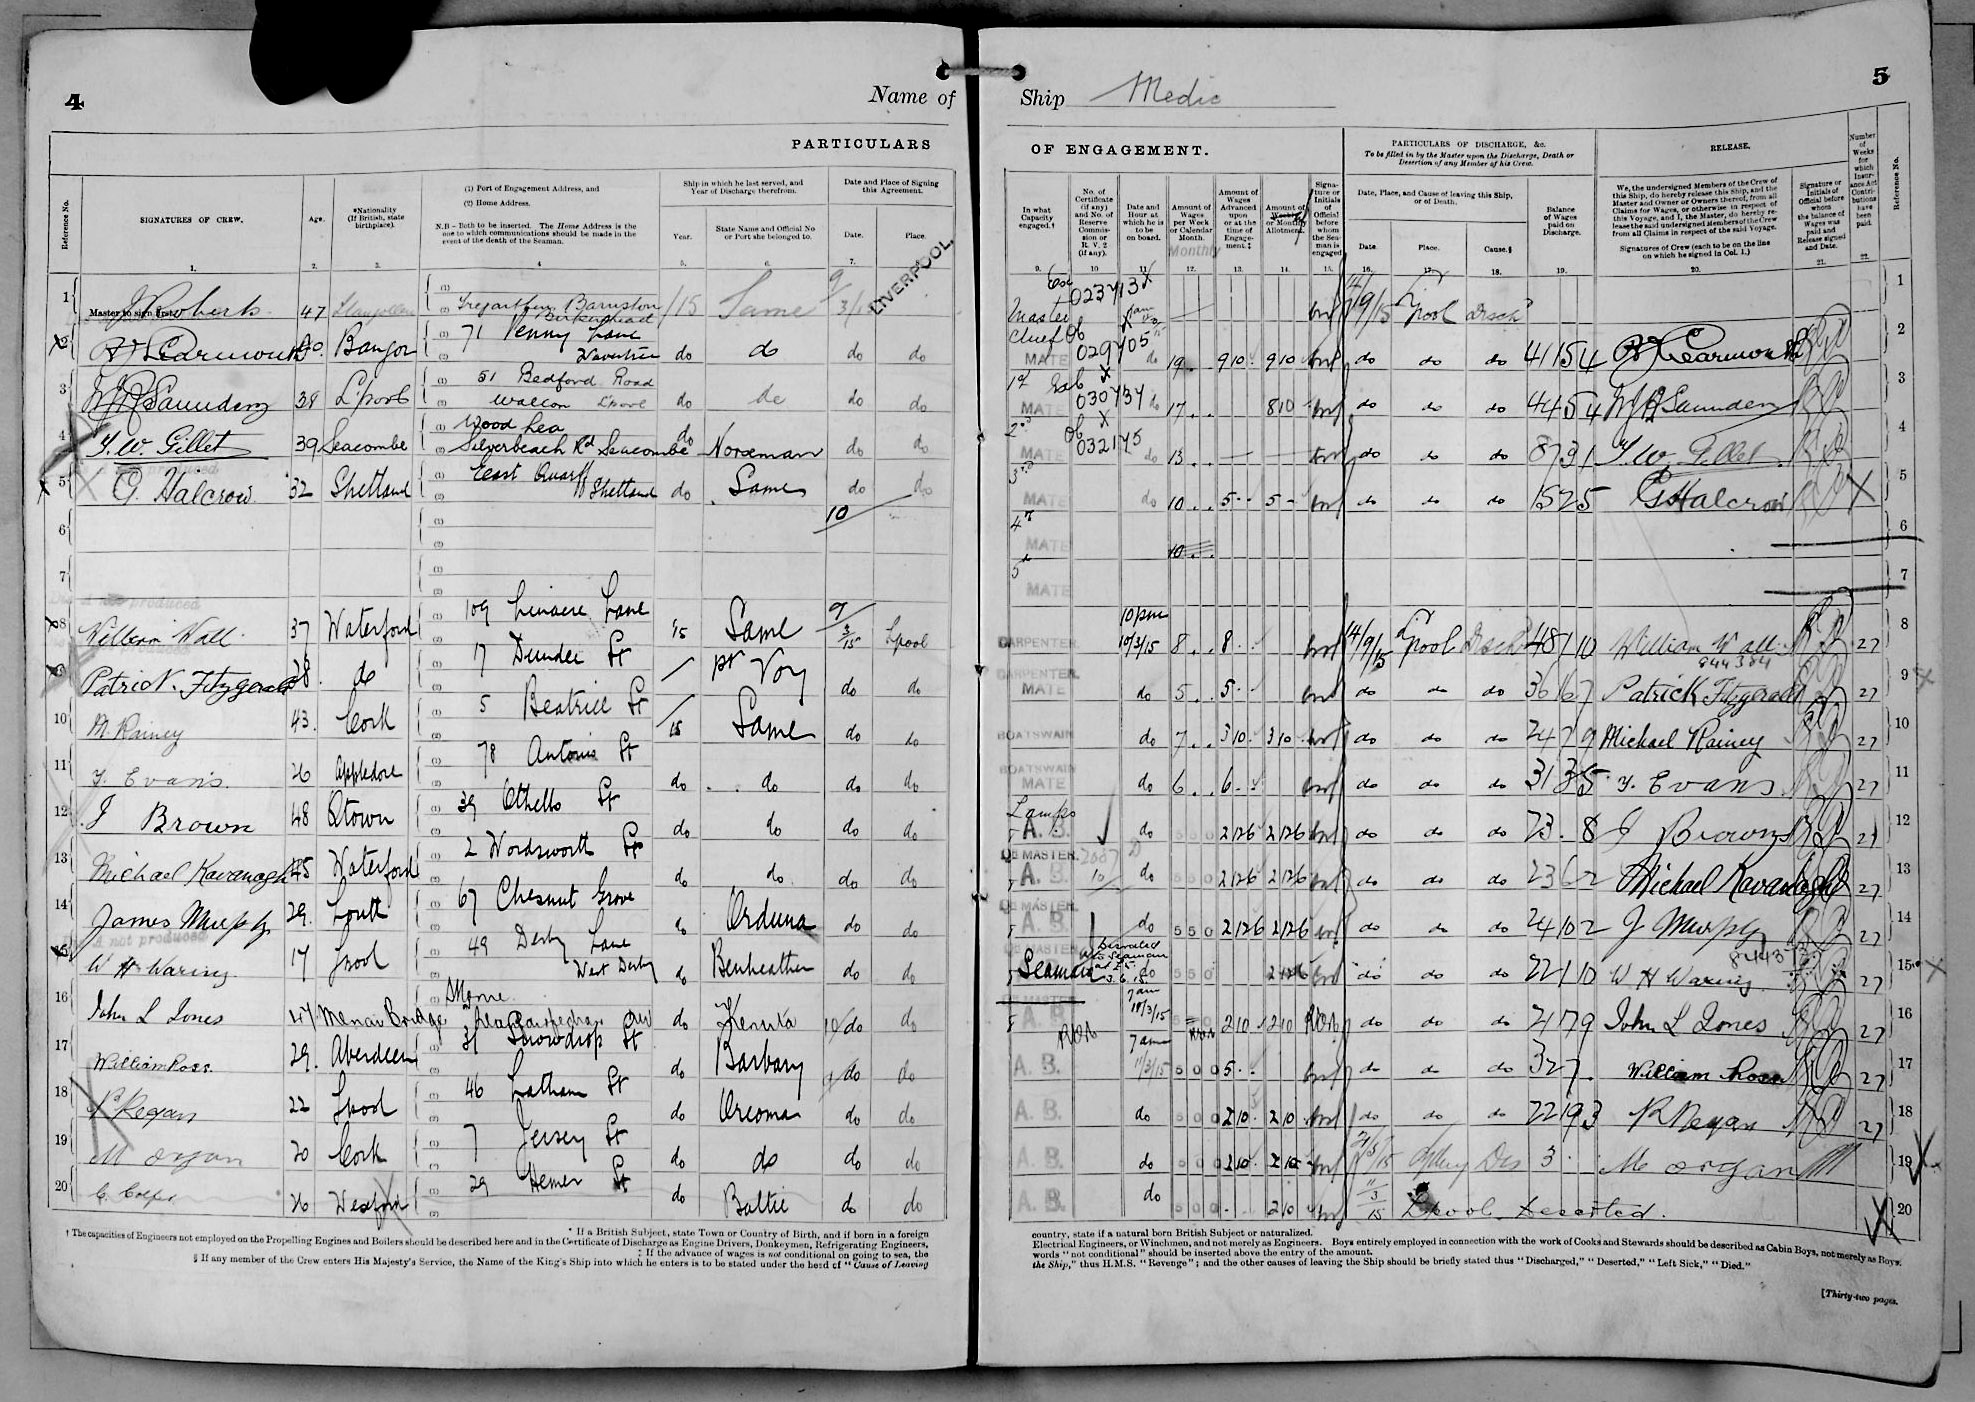 4
Name of
PARTICULARS
Reference No.
SIGNATURES OF CREW.
Age.
*Nationality (If British, state birthplace).
(1) Port of Engagement Address, and
(2) Home Address.
N.B - Both to be inserted. The Home Address is the one to which communications should be made in the event of the death of the Seaman.
Ship in which he last served, and Year of Discharge therefrom.
Year.
State Name and Official No or Port she belonged to.
Date and Place of Signing this Agreement.
Date.
Place.
1. 2. 3. 4 5. 6. 7.
LIVERPOOL.
1 Master to sign first J Roberts 47 Barnston Birkenhead /15 Same 9/3/1
2 40 Bangor 71 Penny Lane Wavertree do do do do
3 W J R Saunders 38 L'pool 51 Bedford Road Walton L'pool do do do do
4 F. W. Gillet 39 Seacombe Wood Lea Silverbeach Rd Seacombe do Norseman do do
5 G. Halcrow 32 Shetland East Quarff Shetland do Same do do
6 10
7
8 William Wall 37 Waterford 109 Linacre Lane 15 Same 9/3/15 Lpool
9 Patrick Fitzgerald 28. do 17 Dundee St / pr Voy do do
10 M. Rainey 43. Cork 5 Beatrice St 15 Same do do
11 F. Evans. 26 Appledore 78 Antonio St do do do do
12 J Brown 48 Qtown 39 Othello St do do do do
13 Michael Kavanagh 45 Waterford 2 Wordsworth St do do do do
14 James Murphy 29. Louth 67 Chesnut Grove do Orduna do do
15 W H Waring 17 Lpool 49 Derby Lane West Derby do Benheather do do
16 John L Jones 47 Menai Bridge do Kenuta 10/ do do
17 William Ross. 29. Aberdeen 31 Snowdrop St do Barbary do do
18 P Regan 22 Lpool 46 Latham St do Orcoma do do
19 M organ 20 Cork 7 Jersey St do do do do
20 26 Wexford 29 Hemer St do Baltic do do
† The capacities of Engineers not employed on the Propelling Engines and Boilers should be described here and in the Certificate of Discharge as Engine Drivers, Donkeymen, Refrigerating Engineers,
* If a British Subject, state Town or Country of Birth, and if born in a foreign
‡ If the advance of wages is not conditional on going to sea, the
§ If any member of the Crew enters His Majesty's Service, the Name of the King's Ship into which he enters is to be stated under the head of "Cause of Leaving
5
Ship Medic
OF ENGAGEMENT.
PARTICULARS OF DISCHARGE, &c.
To be filled in by the Master upon the Discharge, Death or Desertion of any Member of his Crew.
RELEASE.
In what Capacity engaged.†
No. of Certificate (if any) and No. of Reserve Commission or R. V. 2 (if any).
Date and Hour at which he is to be on board.
Amount of Wages per Week or Calendar Month.
Monthly
Amount of Wages Advanced upon or at the time of Engagement.‡
Amount of Weekly or Monthly Allotment.
Signature or Initials of Official before whom the Seaman is engaged
Date, Place, and Cause of leaving this Ship, or of Death.
Date.
Place.
Cause.§
Balance of Wages paid on Discharge.
We, the undersigned Members of the Crew of this Ship, do hereby release this Ship, and the Master and Owner or Owners thereof, from all Claims for Wages, or otherwise in respect of this Voyage, and I, the Master, do hereby release the said undersigned Members of the Crew from all Claims in respect of the said Voyage.
Signatures of Crew (each to be on the line on which he signed in Col. 1.)
Signature or Initials of Official before whom the balance of Wages was paid and Release signed and Date.
Number of Weeks for which Insurance Act Contributions have been paid.
Reference No.
9. 10 11 12. 13. 14. 15. 16. 17. 18. 19. 20. 21. 22.
Master 023713 14/9/15 Lpool Disch 1
Chief MATE 029705 do 19 9 10 9 10 do do do 41 15 4 2
1st MATE 030737 do 17 8 10 do do do 44 5 4 W J R Saunders 3
2nd MATE 032175 do 13 do do do 87 3 1 F. W. Gillet 4
3rd MATE do 10 5 5 do do do 15 2 5 G Halcrow 5
4th MATE 10 6
5th MATE 7
CARPENTER 10 pm 10/3/15 8 8 14/9/15 Lpool Disch 48 1 10 William Wall 944384 27 8
CARPENTER. MATE do 5 5 do do do 36 16 7 Patrick Fitzgerald 27 9
BOATSWAIN do 7 3 10 3 10 do do do 24 7 9 Michael Rainey 27 10
BOATSWAIN MATE do 6 6 do do do 31 3 5 F. Evans 27 11
Lamps A. B. do 5 5 0 2 12 6 2 12 6 do do do 23 . 8 J Brown 27 12
QR MASTER. A. B. do 5 5 0 2 12 6 2 12 6 do do do 23 6 2 Michael Kavanagh 27 13
QR MASTER. A. B. do 5 5 0 2 12 6 2 12 6 do do do 24 10 2 J Murphy 27 14
QR MASTER Seaman do 5 5 0 do do do 22 1 10 W H Waring 27 15
A. B. 7 am 10/3/15 2 10 2 10 do do do 24 7 9 John L Jones 27 16
A. B. 7 am 11/3/15 5 0 0 5 do do do 32 7 William Ross 27 17
A. B. do 5 0 0 2 10 2 10 do do do 22 19 3 P Regan 27 18
A. B. do 5 0 0 2 10 2 10 Des 3 M organ 19
A. B. do 5 0 0 2 10 11/3/15 Lpool Deserted. 20
country, state if a natural born British Subject or naturalized.
Electrical Engineers, or Winchmen, and not merely as Engineers. Boys entirely employed in connection with the work of Cooks and Stewards should be described as Cabin Boys, not merely as Boys.
words "not conditional" should be inserted above the entry of the amount.
the Ship," thus H.M.S. "Revenge"; and the other causes of leaving the Ship should be briefly stated thus "Discharged," "Deserted," "Left Sick," "Died."
[Thirty-two pages.